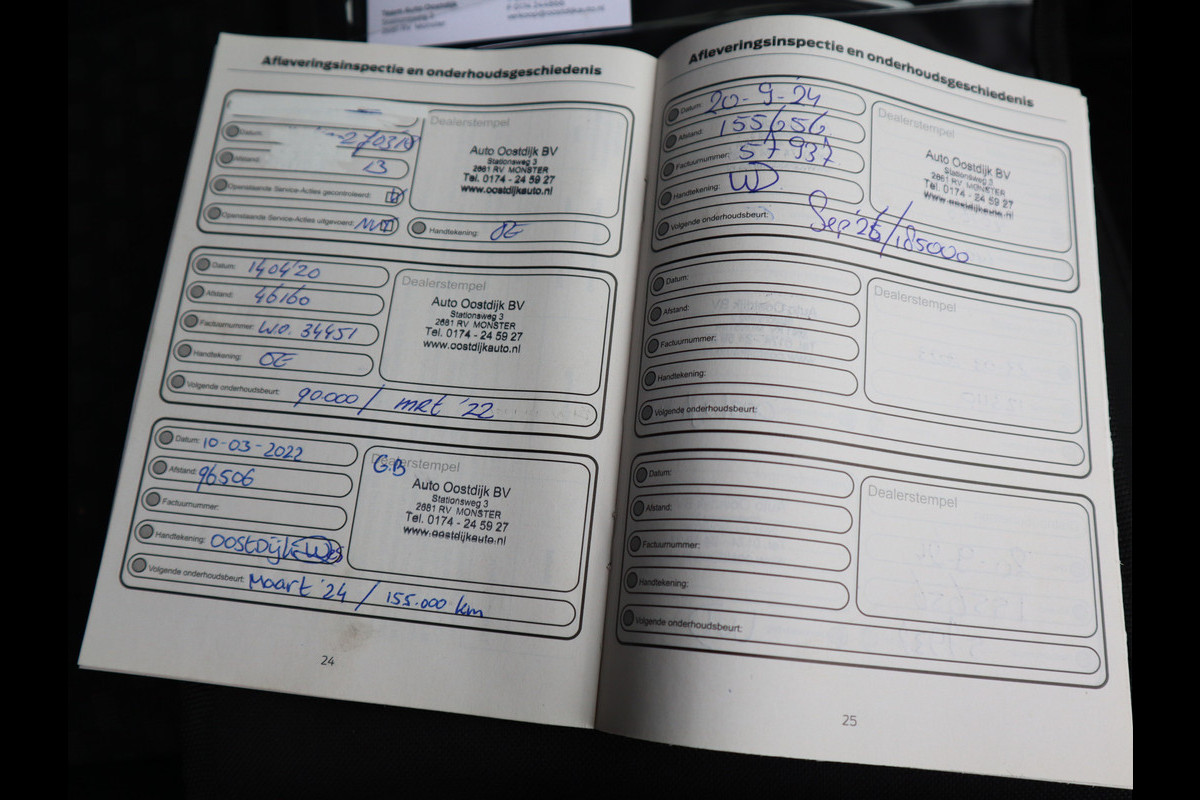 Team Auto Oostdijk
Afleveringsinspectie en onderhoudsgeschiedenis
Datum: 270318
Afstand: 13
Openstaande Service-Acties gecontroleerd:
Openstaande Service-Acties uitgevoerd: NVT
Dealerstempel
Auto Oostdijk BV
Stationsweg 3
2681 RV MONSTER
Tel. 0174 - 24 59 27
www.oostdijkauto.nl
Handtekening: OE
Datum: 140420
Afstand: 46160
Factuurnummer: W.O. 34451
Handtekening: OE
Volgende onderhoudsbeurt: 90.000 / mrt '22
Dealerstempel
Auto Oostdijk BV
Stationsweg 3
2681 RV MONSTER
Tel. 0174 - 24 59 27
www.oostdijkauto.nl
Datum: 10-03-2022
Afstand: 96506
Factuurnummer:
Handtekening: OOSTDIJK
Volgende onderhoudsbeurt: Maart '24 / 155.000 km
Dealerstempel
G.B
Auto Oostdijk BV
Stationsweg 3
2681 RV MONSTER
Tel. 0174 - 24 59 27
www.oostdijkauto.nl
24
Afleveringsinspectie en onderhoudsgeschiedenis
Datum: 20-9-24
Afstand: 155656
Factuurnummer: 57937
Handtekening: WD
Volgende onderhoudsbeurt: Sep '26 / 185000
Dealerstempel
Auto Oostdijk BV
Stationsweg 3
2681 RV MONSTER
Tel. 0174 - 24 59 27
www.oostdijkauto.nl
Datum:
Afstand:
Factuurnummer:
Handtekening:
Volgende onderhoudsbeurt:
Dealerstempel
Datum:
Afstand:
Factuurnummer:
Handtekening:
Volgende onderhoudsbeurt:
Dealerstempel
25